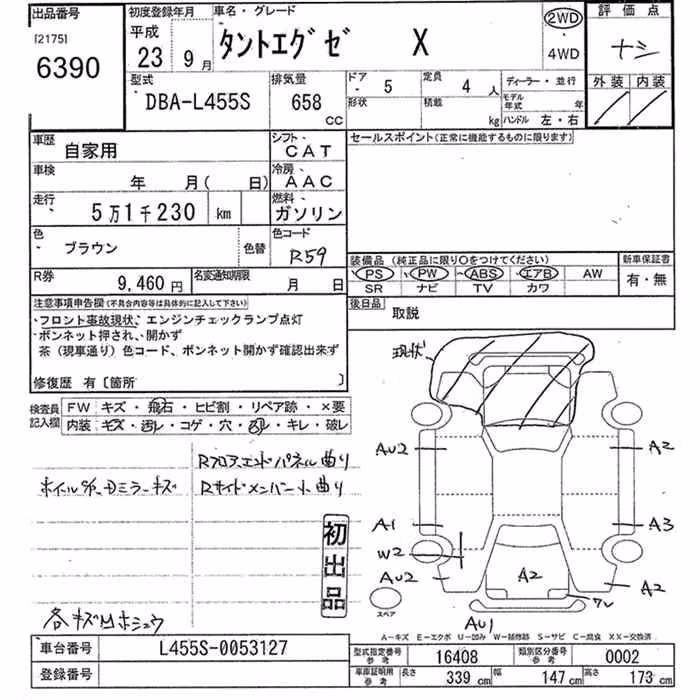 出品番号
[2175]
6390
初度登録年月
平成
23 9月
車名・グレード
タントエグゼ X
2WD
・
4WD
評価点
ナシ
外装 内装
型式
DBA-L455S
排気量
658
cc
ドア
- 5
形状
定員
4 人
積載
kg
ディーラー・並行
モデル年式 年
ハンドル 左・右
車歴
自家用
シフト
CAT
車検
年 月( 日)
冷房
AAC
走行
5万1千230 km
燃料
ガソリン
色
ブラウン
色替
色コード
R59
R券
9,460円
名変通知期限
月 日
セールスポイント(正常に機能するものに限ります)
装備品 (純正品に限り○をつけてください)
PS PW ABS エアB AW
SR ナビ TV カワ
新車保証書
有・無
後日品
取説
注意事項申告欄(不具合内容等は具体的に記入して下さい)
・フロント事故現状、エンジンチェックランプ点灯
・ボンネット押され、開かず
茶(現車通り)色コード、ボンネット開かず確認出来ず
修復歴 有〔箇所 〕
検査員記入欄
FW キズ・飛石・ヒビ割・リペア跡・×要
内装 キズ・汚レ・コゲ・穴・凹レ・キレ・破レ
Rフロアエンドパネル曲り
ホイルキズ、Dミラーキズ
Rサイドメンバー小曲り
初出品
各キズ凹ホシュウ
現状
AU2
A2
A1
A3
W2
AU2
A2
A2
ワレ
AU1
スペア
A-キズ E-エクボ U-凹み W-補修跡 S-サビ C-腐食 XX-交換済
車台番号
L455S-0053127
登録番号
型式指定番号
参考
16408
類別区分番号
参考
0002
車庫証明用
参考
長さ 339cm 幅 147cm 高さ 173cm